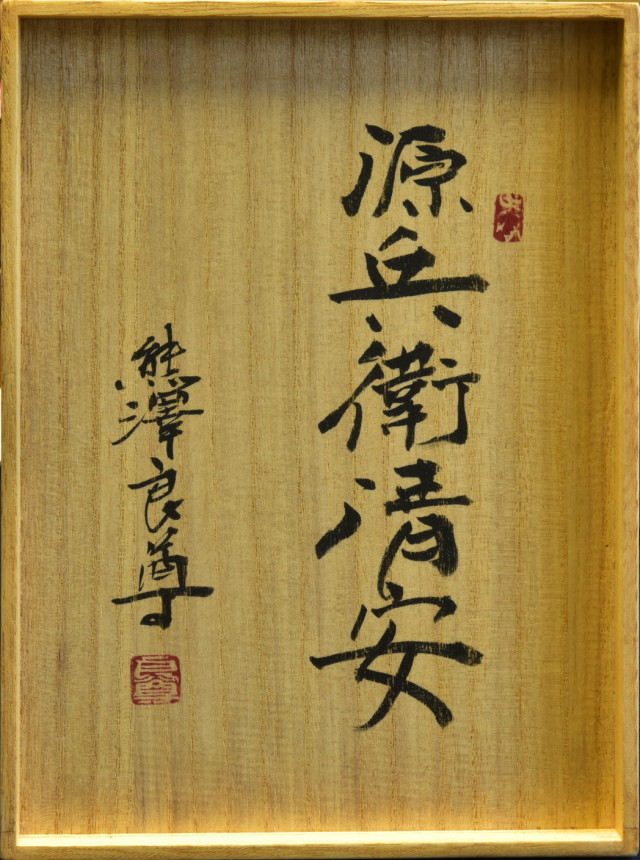 源兵衛清安
熊澤良尊